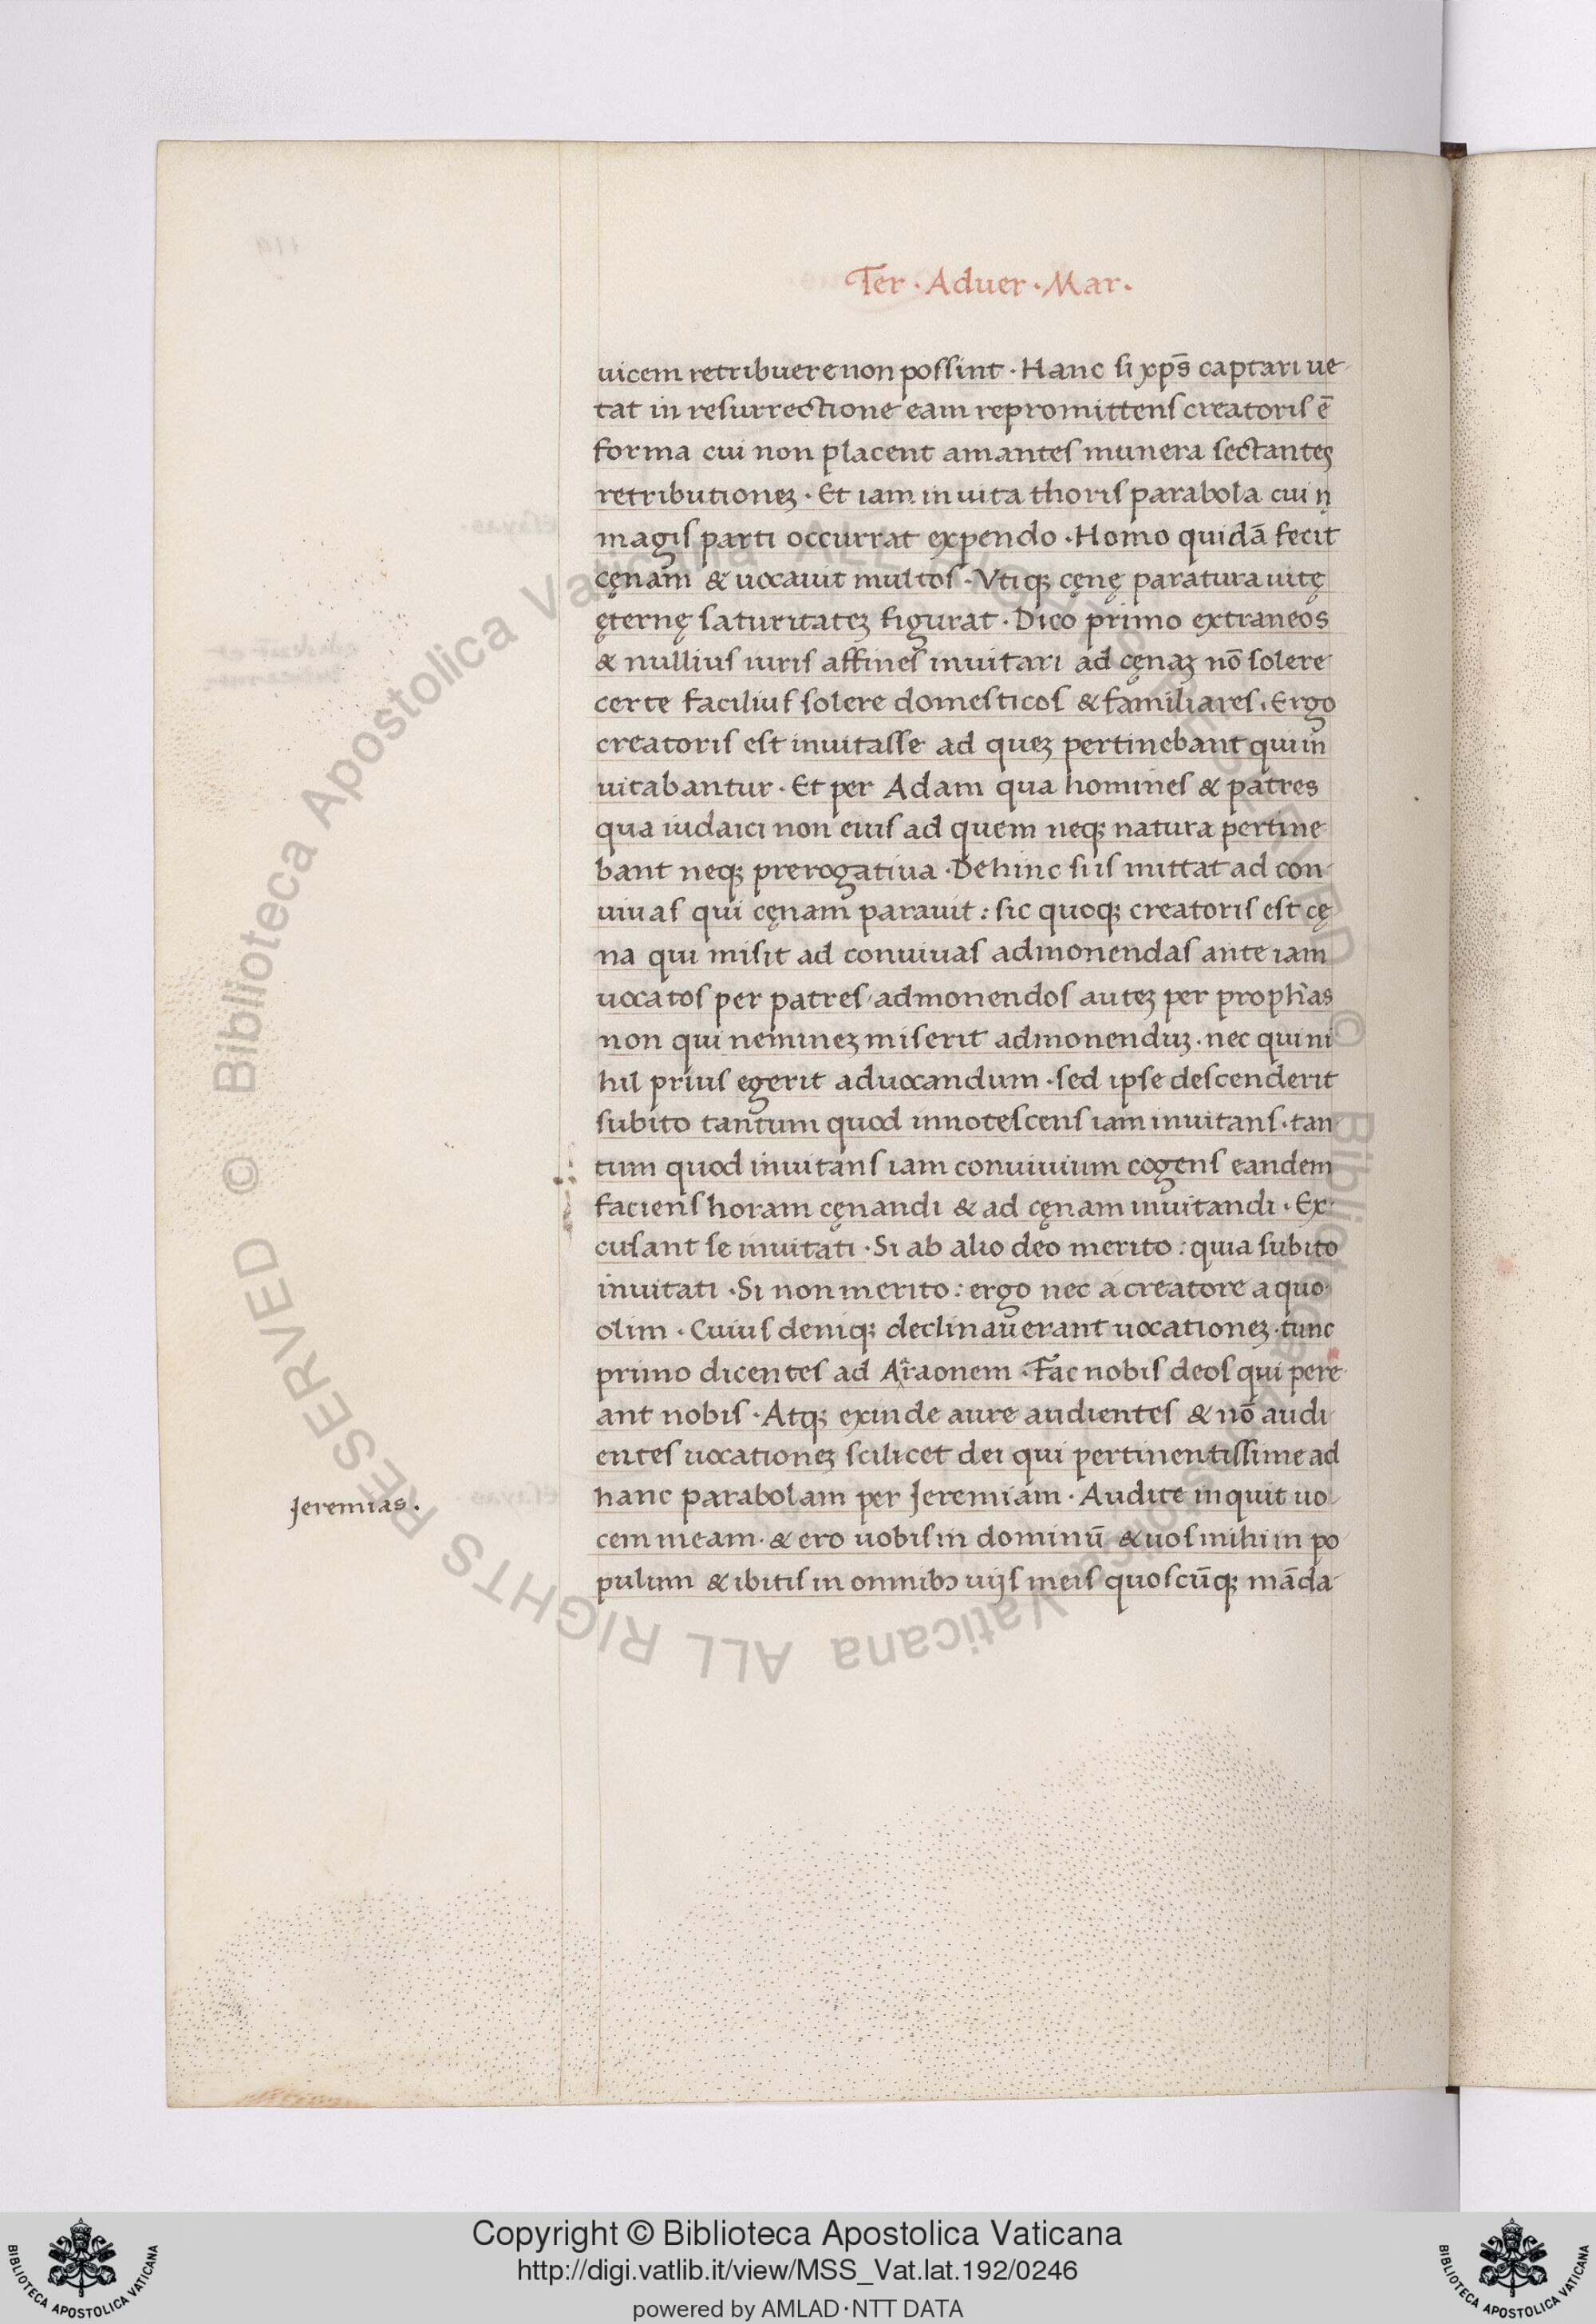 Ter · Aduer · Mar ·
uicem retribuere non possint · Hanc si xp̄s captari ue-
tat in resurrectione eam repromittens creatoris ē
forma cui non placent amantes munera sectantes
retributionez · Et iam inuita thoris parabola cui n
magis parti occurrat expendo · Homo quidā fecit
cęnam & uocauit multos · Vtiqꝫ cęnę paratura uitę
ęternę saturitatez figurat · Dico primo extraneos
& nullius iuris affines inuitari ad cęnaz nō solere
certe facilius solere domesticos & familiares · Ergo
creatoris est inuitasse ad quez pertinebant qui in
uitabantur · Et per Adam qua homines & patres
qua iudaici non eius ad quem neqꝫ natura pertine
bant neqꝫ prerogatiua · Dehinc si is mittat ad con-
uiuas qui cęnam parauit : sic quoqꝫ creatoris est cę
na qui misit ad conuiuas admonendas ante iam
uocatos per patres / admonendos autez per proph'as
non qui neminez miserit admonenduz · nec qui ni
hil prius egerit aduocandum · sed ipse descenderit
subito tantum quod innotescens iam inuitans · tan
tum quod inuitans iam conuiuium cogens eandem
faciens horam cęnandi & ad cęnam inuitandi · Ex-
cusant se inuitati · Si ab alio deo merito : quia subito
inuitati · Si non merito : ergo nec a creatore a quo
olim · Cuius deniqꝫ declinauerant uocationez · tunc
primo dicentes ad Araonem · Fac nobis deos qui pere-
ant nobis · Atqꝫ exinde aure audientes & nō audi
entes uocationez scilicet dei qui pertinentissime ad
hanc parabolam per Jeremiam · Audite inquit uo-
Jeremias ·
cem meam · & ero uobis in dominū & uos mihi in po-
pulum & ibitis in omnibꝫ uijs meis quoscūqꝫ māda-
© Biblioteca Apostolica Vaticana ALL RIGHTS RESERVED
Copyright © Biblioteca Apostolica Vaticana
http://digi.vatlib.it/view/MSS_Vat.lat.192/0246
powered by AMLAD·NTT DATA
BIBLIOTECA APOSTOLICA VATICANA
BIBLIOTECA APOSTOLICA VATICANA